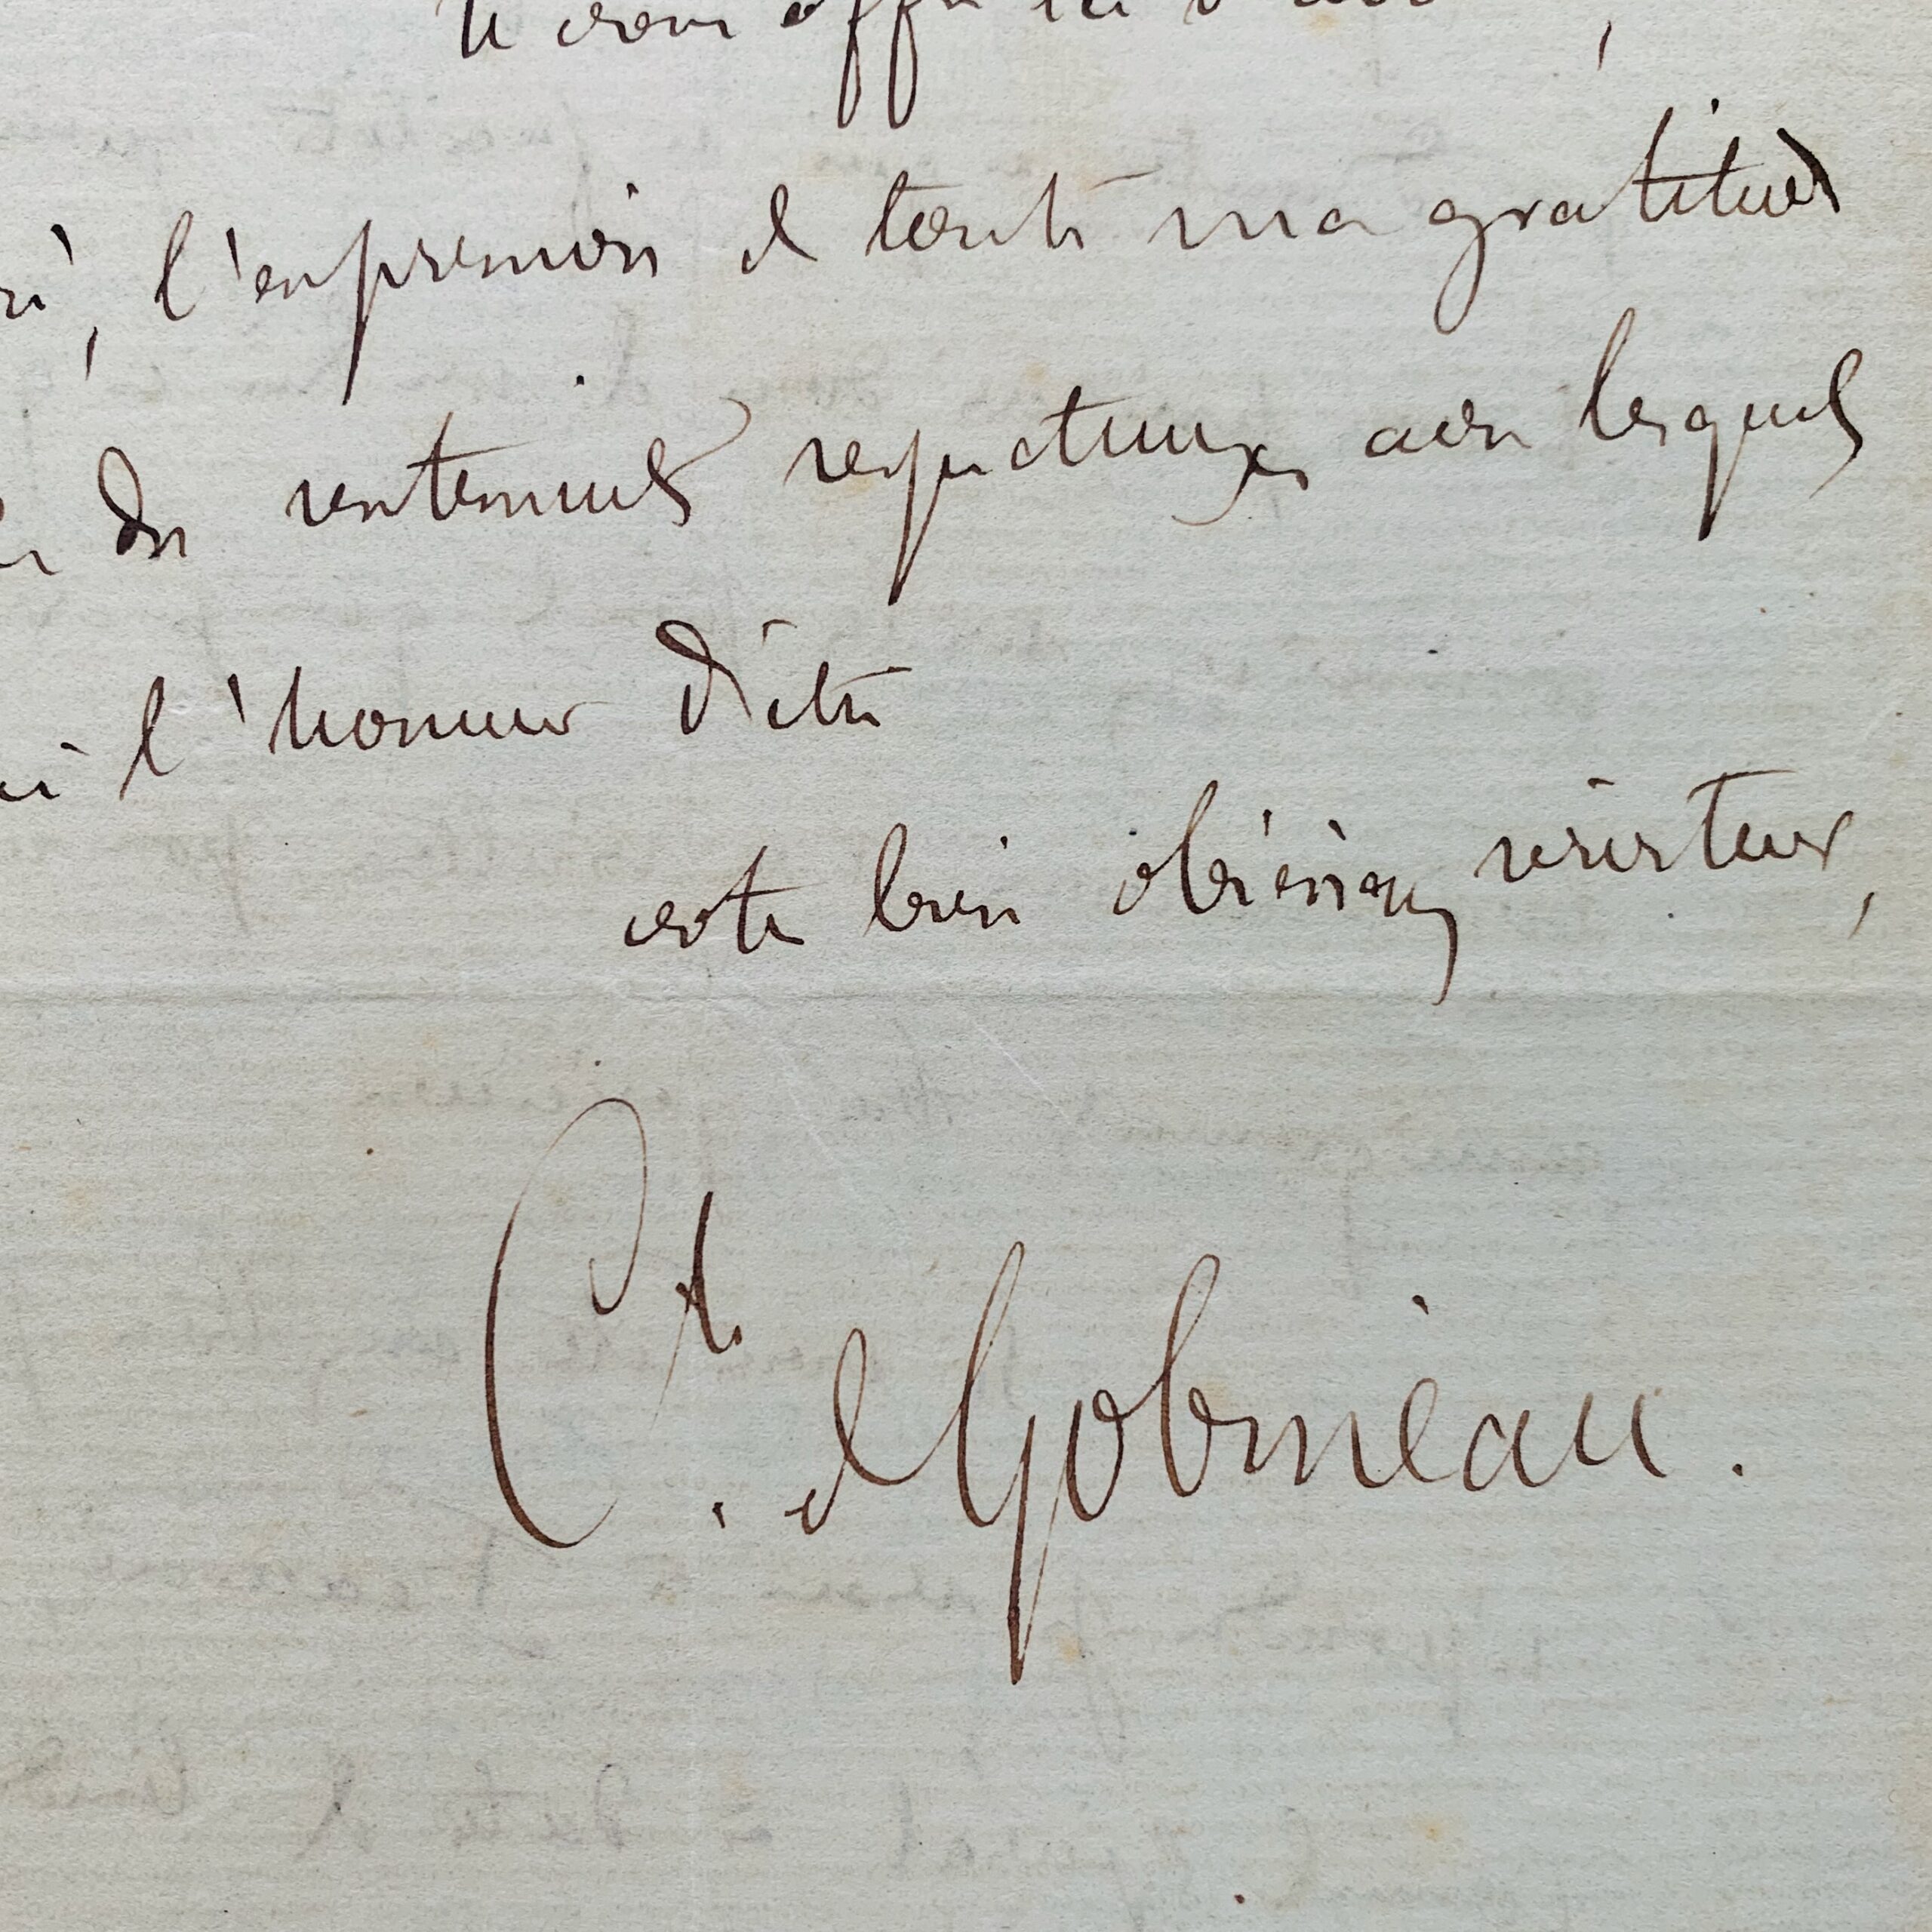 vous offrir ici
l'expression de toute ma gratitude
des sentiments respectueux avec lesquels
l'honneur d'être
votre bien obéissant serviteur,
Cte. de Gobineau.